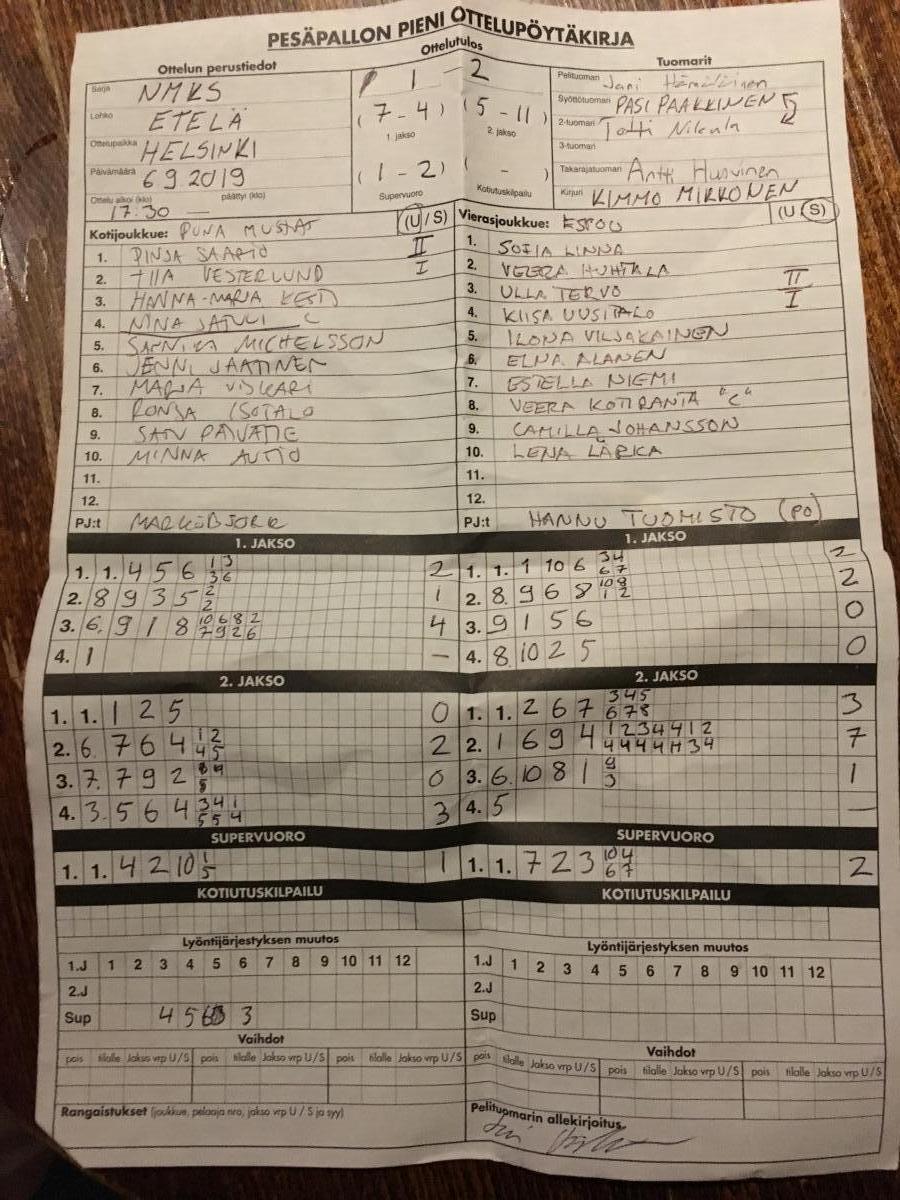 PESÄPALLON PIENI OTTELUPÖYTÄKIRJA
Ottelun perustiedot
Ottelutulos
Tuomarit
Sarja NMKS
Lohko ETELÄ
Ottelupaikka HELSINKI
Päivämäärä 6 9 2019
Ottelu alkoi (klo) päättyi (klo)
17:30 —
1 - 2
(7-4) (5-11)
1. jakso 2. jakso
(1-2) ( - )
Supervuoro Kotiutuskilpailu
Pelituomari Jani Hämäläinen
Syöttötuomari PASI PAAKKINEN
2-tuomari
3-tuomari
Takarajatuomari Antti Huovinen
Kirjuri KIMMO MIKKONEN
Kotijoukkue: PUNA MUSTAT (U/S)
1. PINJA SAARIO II
2. TIIA VESTERLUND I
3. HANNA-MARJA KESTI
4. NINA JATULI C
5. SANNIKA MICHELSSON
6. JENNI JAATINEN
7. MARJA VISKARI
8. RONJA ISOTALO
9. SATU PÄIVÄTIE
10. MINNA AUTIO
11.
12.
PJ:t MARKO BJORK
Vierasjoukkue: ESPOO (U/S)
1. SOFIA LINNA
2. VEERA HUHTALA
3. ULLA TERVO II
4. KIISA UUSITALO I
5. ILONA VILJAKAINEN
6. ELNA ALANEN
7. ESTELLA NIEMI
8. VEERA KOTIRANTA "C"
9. CAMILLA JOHANSSON
10. LENA LÄRKA
11.
12.
PJ:t HANNU TUOMISTO (PO)
1. JAKSO
1. 1. 4 5 6 1 3 2
3 6
2. 8 9 3 5 2 1
2
3. 6. 9 1 8 10 6 8 2 4
7 9 2 6
4. 1 —
1. JAKSO
1. 1. 1 10 6 3 4 2
6 7
2. 8. 9 6 8 10 8 2
1 2
3. 9 1 5 6 0
4. 8. 10 2 5 0
2. JAKSO
1. 1. 1 2 5 0
2. 6. 7 6 4 1 2 2
4 5
3. 7. 7 9 2 0
4. 3. 5 6 4 3 4 1 3
5 5 4
2. JAKSO
1. 1. 2 6 7 3 4 5 3
6 7 8
2. 1 6 9 4 1 2 3 4 4 1 2 7
3. 6. 10 8 1 9 1
3
4. 5 —
SUPERVUORO
1. 1. 4 2 10 1 1
5
SUPERVUORO
1. 1. 7 2 3 10 4 2
6 7
KOTIUTUSKILPAILU
KOTIUTUSKILPAILU
Lyöntijärjestyksen muutos
1.J 1 2 3 4 5 6 7 8 9 10 11 12
2.J
Sup 4 5 6 3
Lyöntijärjestyksen muutos
1.J 1 2 3 4 5 6 7 8 9 10 11 12
2.J
Sup
Vaihdot
pois tilalle Jakso vrp U/S pois tilalle Jakso vrp U/S pois tilalle Jakso vrp U/S
Vaihdot
pois tilalle Jakso vrp U/S pois tilalle Jakso vrp U/S pois tilalle Jakso vrp U/S
Rangaistukset (joukkue, pelaaja nro, jakso vrp U / S ja syy)
Pelituomarin allekirjoitus